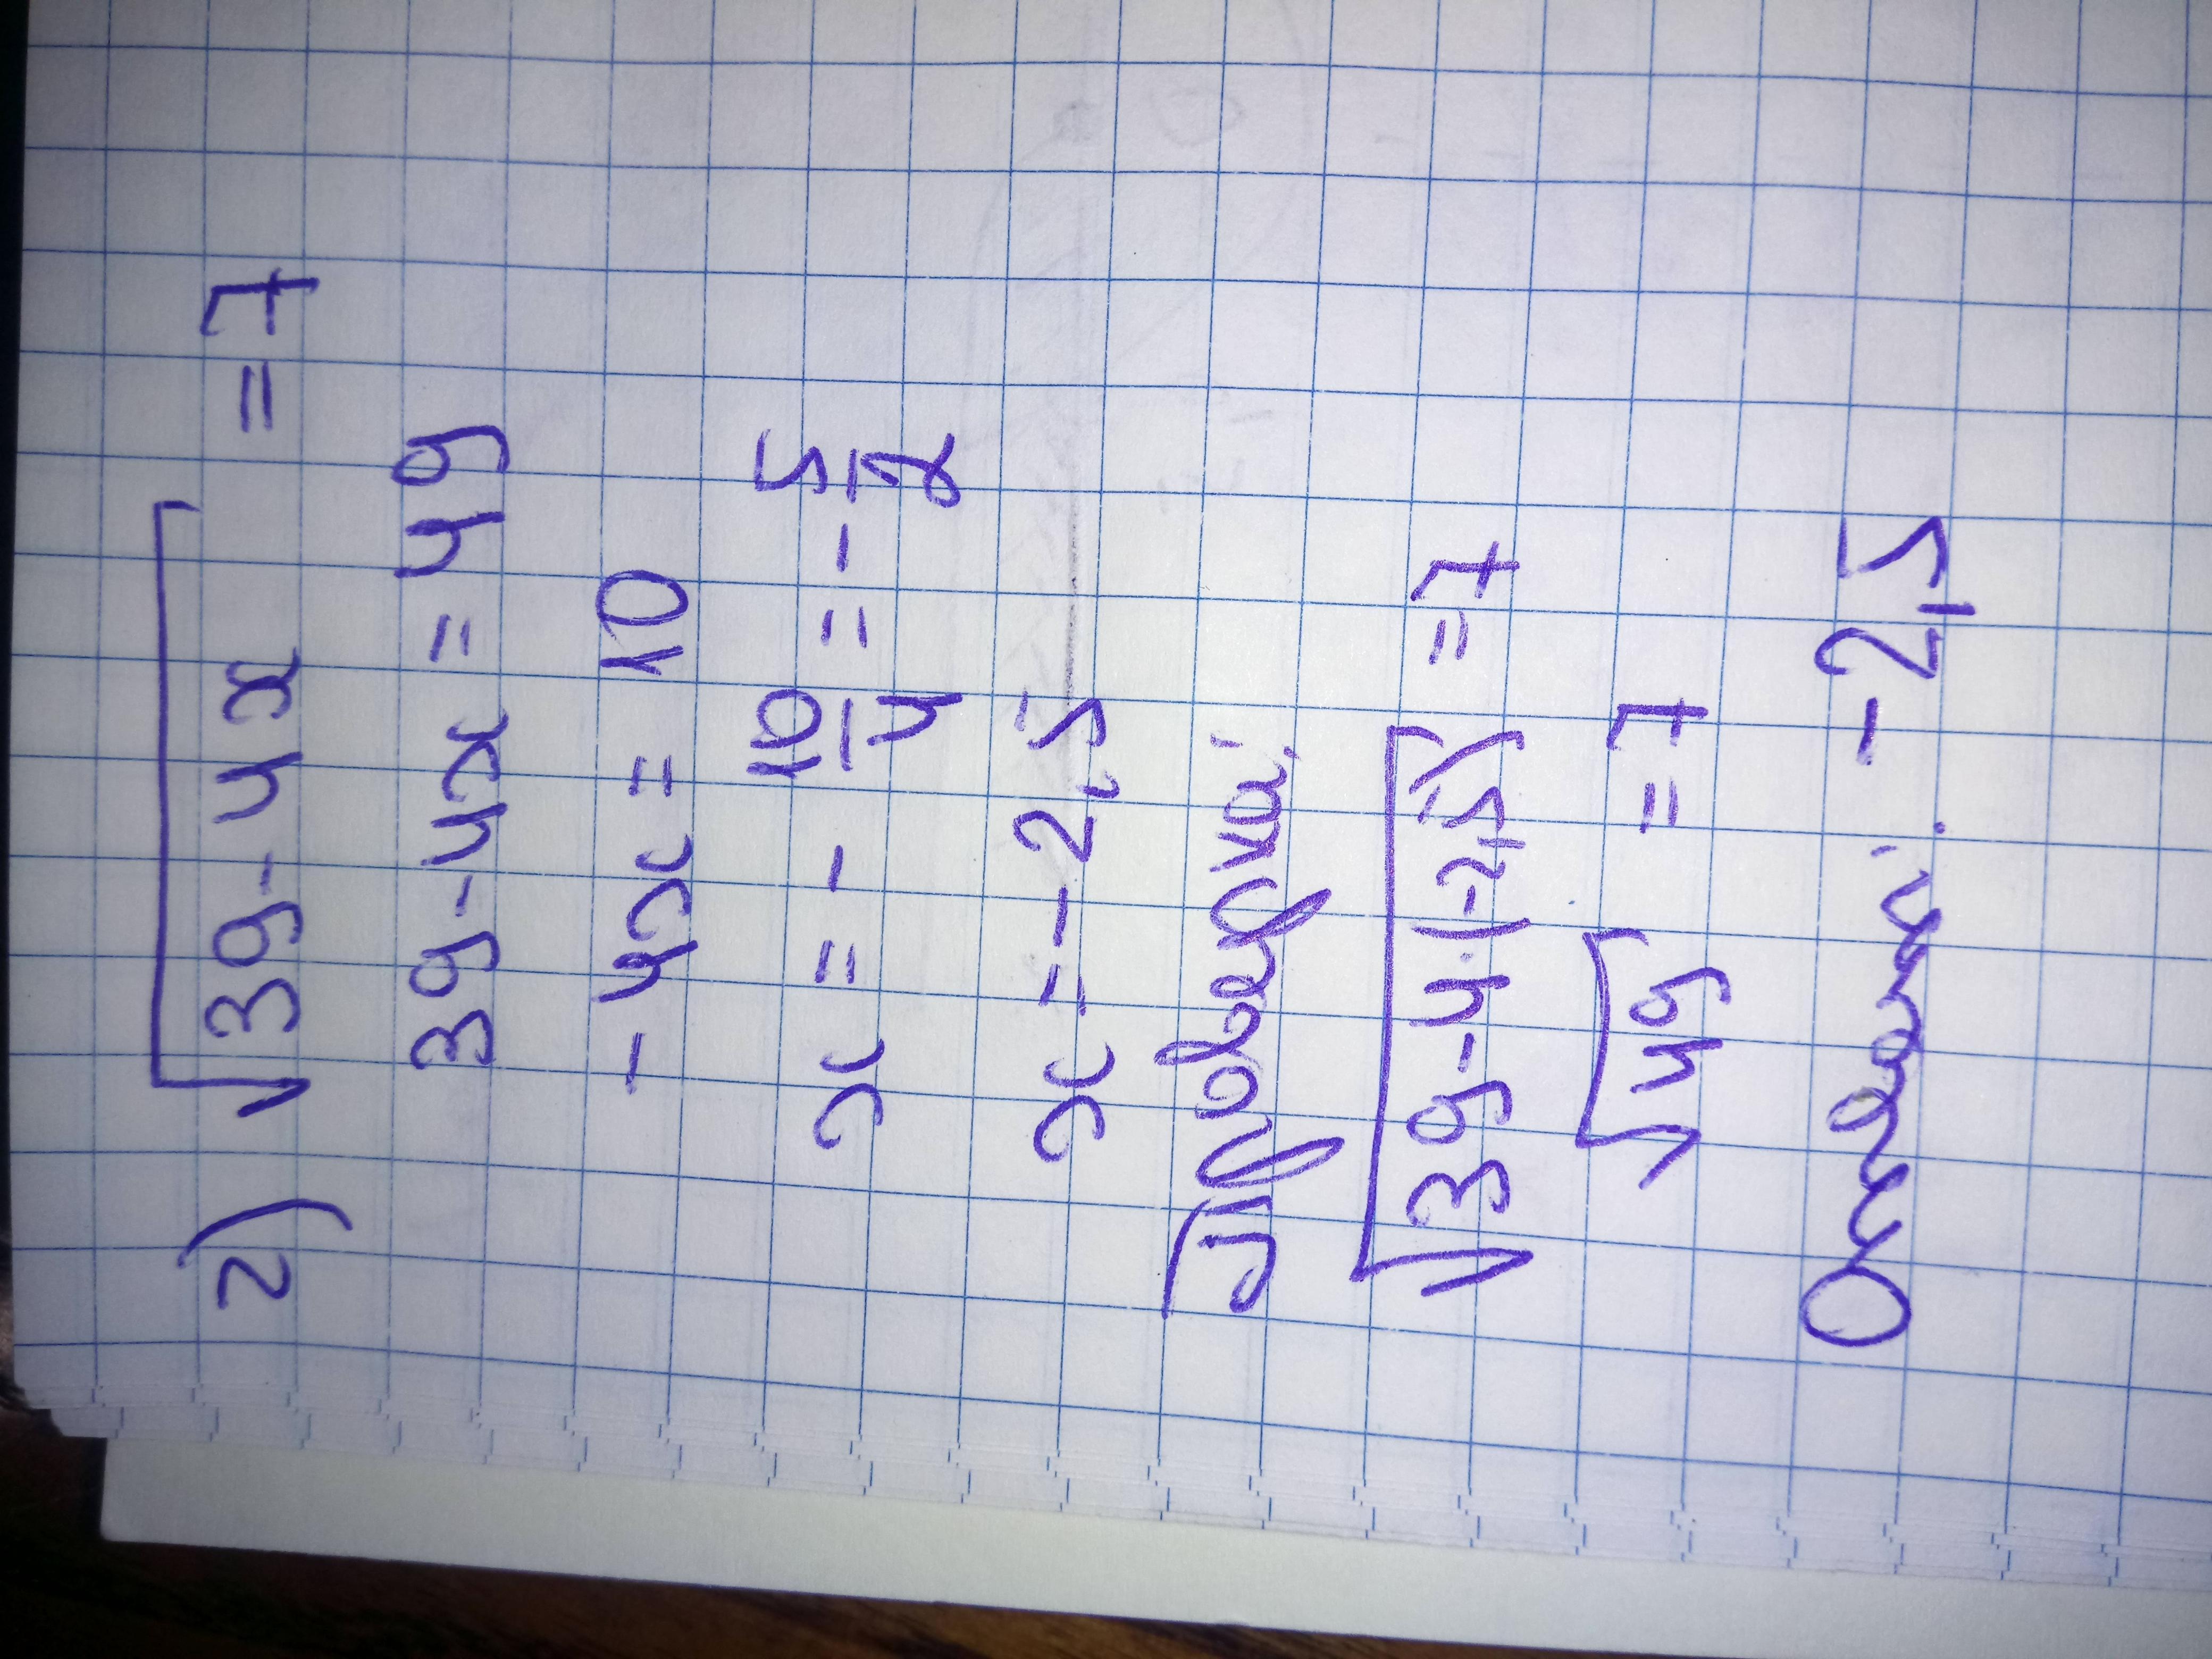 2) √39-4x = 7
39-4x = 49
-4x = 10
x = - 10/4 = - 5/2
x = - 2,5
Проверка:
√39-4·(-2,5) = 7
√49 = 7
Ответ: - 2,5